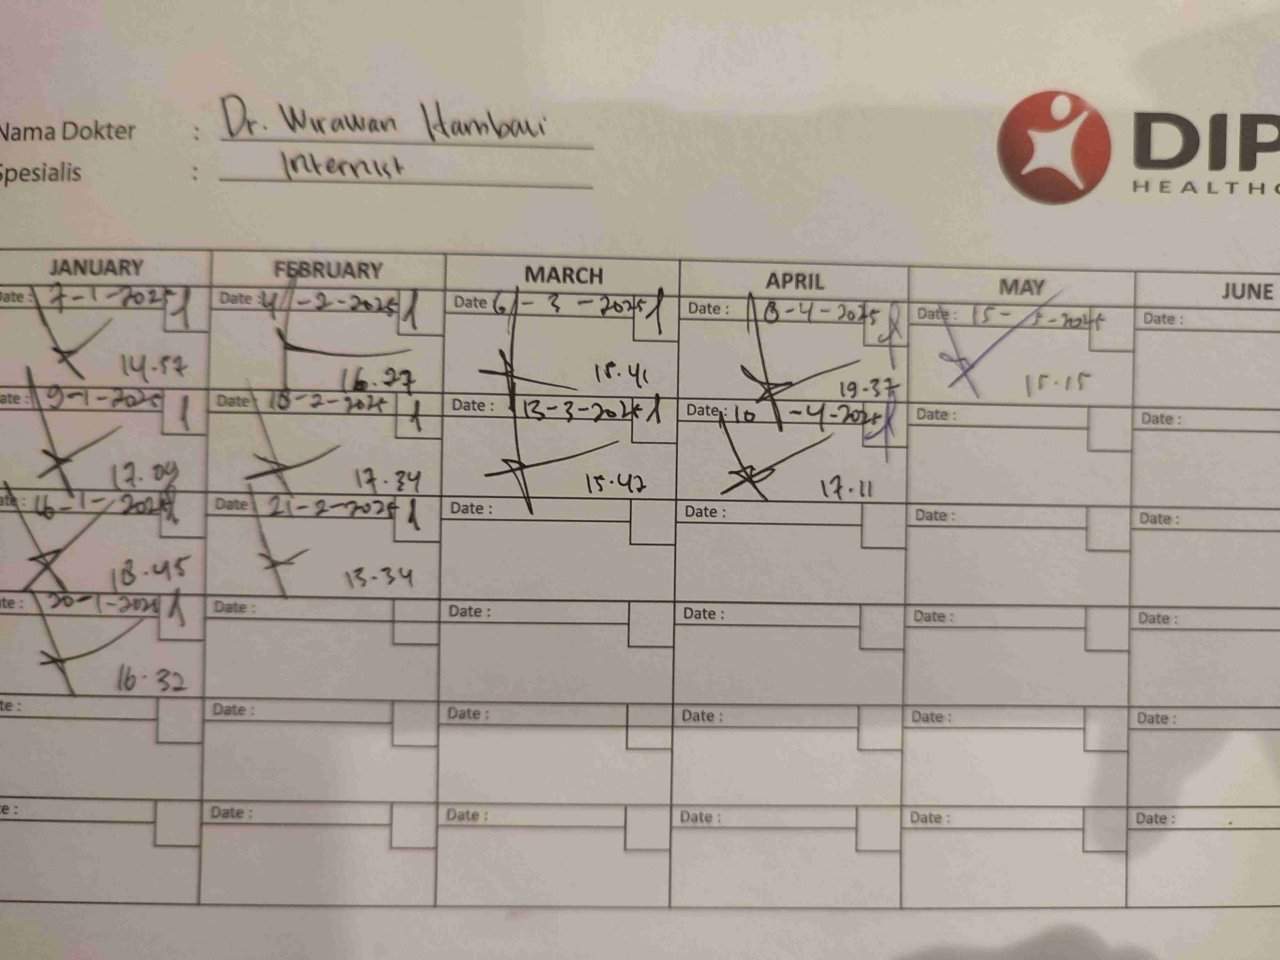 Nama Dokter : Dr. Wirawan Hambali
Spesialis : Internist
DIP
HEALTHC
JANUARY FEBRUARY MARCH APRIL MAY JUNE
Date : 7-1-2025 Date : 4-2-2025 Date 6-3-2025 Date : 8-4-2025 Date : 15-5-2025 Date :
14.57 16.27 15.41 19.37 15.15
ate : 9-1-2025 Date : 18-2-2025 Date : 13-3-2025 Date : 10-4-2025 Date : Date :
17.09 17.34 15.42 17.11
ate : 16-1-2025 Date : 21-2-2025 Date : Date : Date : Date :
18.45 13.34
te : 20-1-2025 Date : Date : Date : Date : Date :
16.32
te : Date : Date : Date : Date : Date :
e : Date : Date : Date : Date : Date :